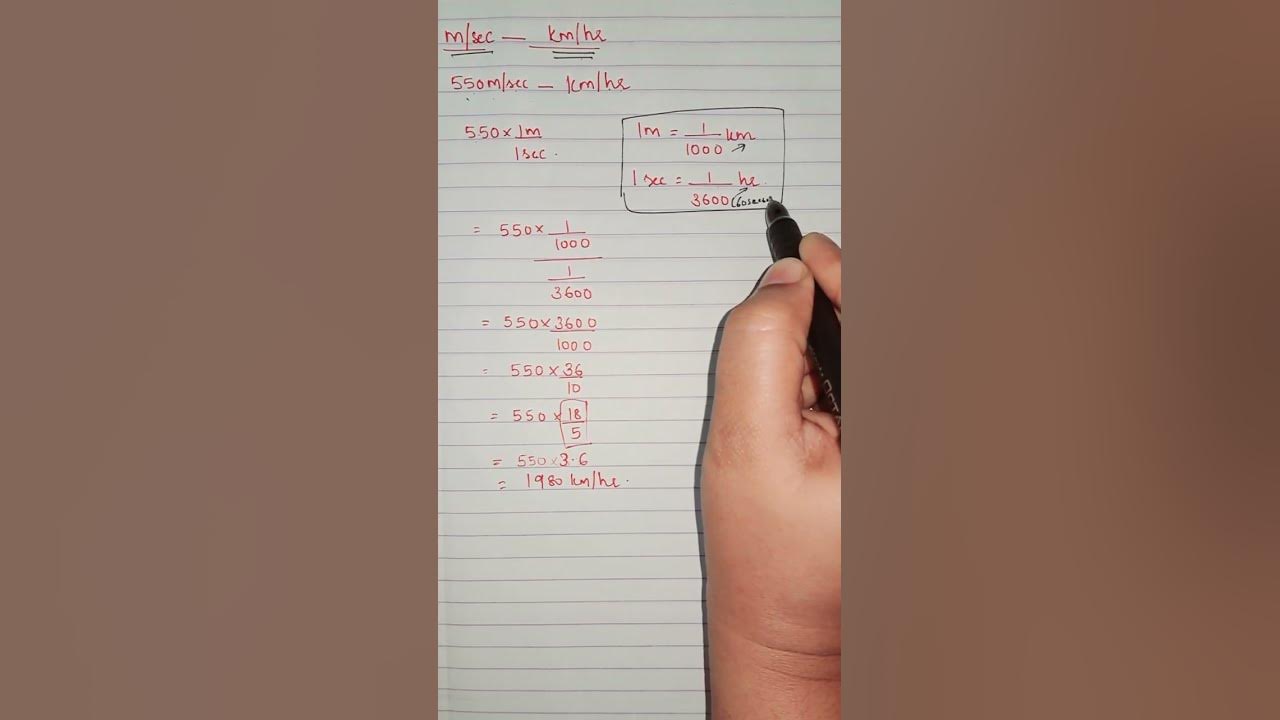 m/sec — km/hr
550m/sec — km/hr
550 × 1m
1 sec.
1m = 1/1000 km
1 sec = 1/3600 hr.
= 550 × 1/1000
1/3600
= 550 × 3600/1000
= 550 × 36/10
= 550 × 18/5
= 550 × 3.6
= 1980 km/hr.